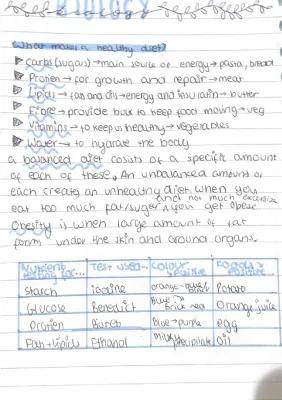 BIOLOGY
What makes a healthy diet?
Carbs(sugars)→main source of energy→pasta, bread
Protien→for growth and repair→meat
Lipids→fats and oils→energy and insulation→butter
Fibre→provide bulk to keep food moving→veg
Vitamins→to keep us healthy→vegetables
Water→to hydrate the body
a balanced diet cosists of a specific amount
of each of these. An unbalanced amount of
each creates an unhealthy diet. when you
eat too much fat/sugar and not much excersise you get obese
Obesity is when large amount of fat
form under the skin and around organs.
Nutrient testing for... Test used... Colour positive Foods positive
Starch iodine orange→ black Potato
Glucose Benedict Blue→ brick red Orange juice
Protien Biuret Blue→purple egg
Fat+lipids Ethanol Milky precipitate oil